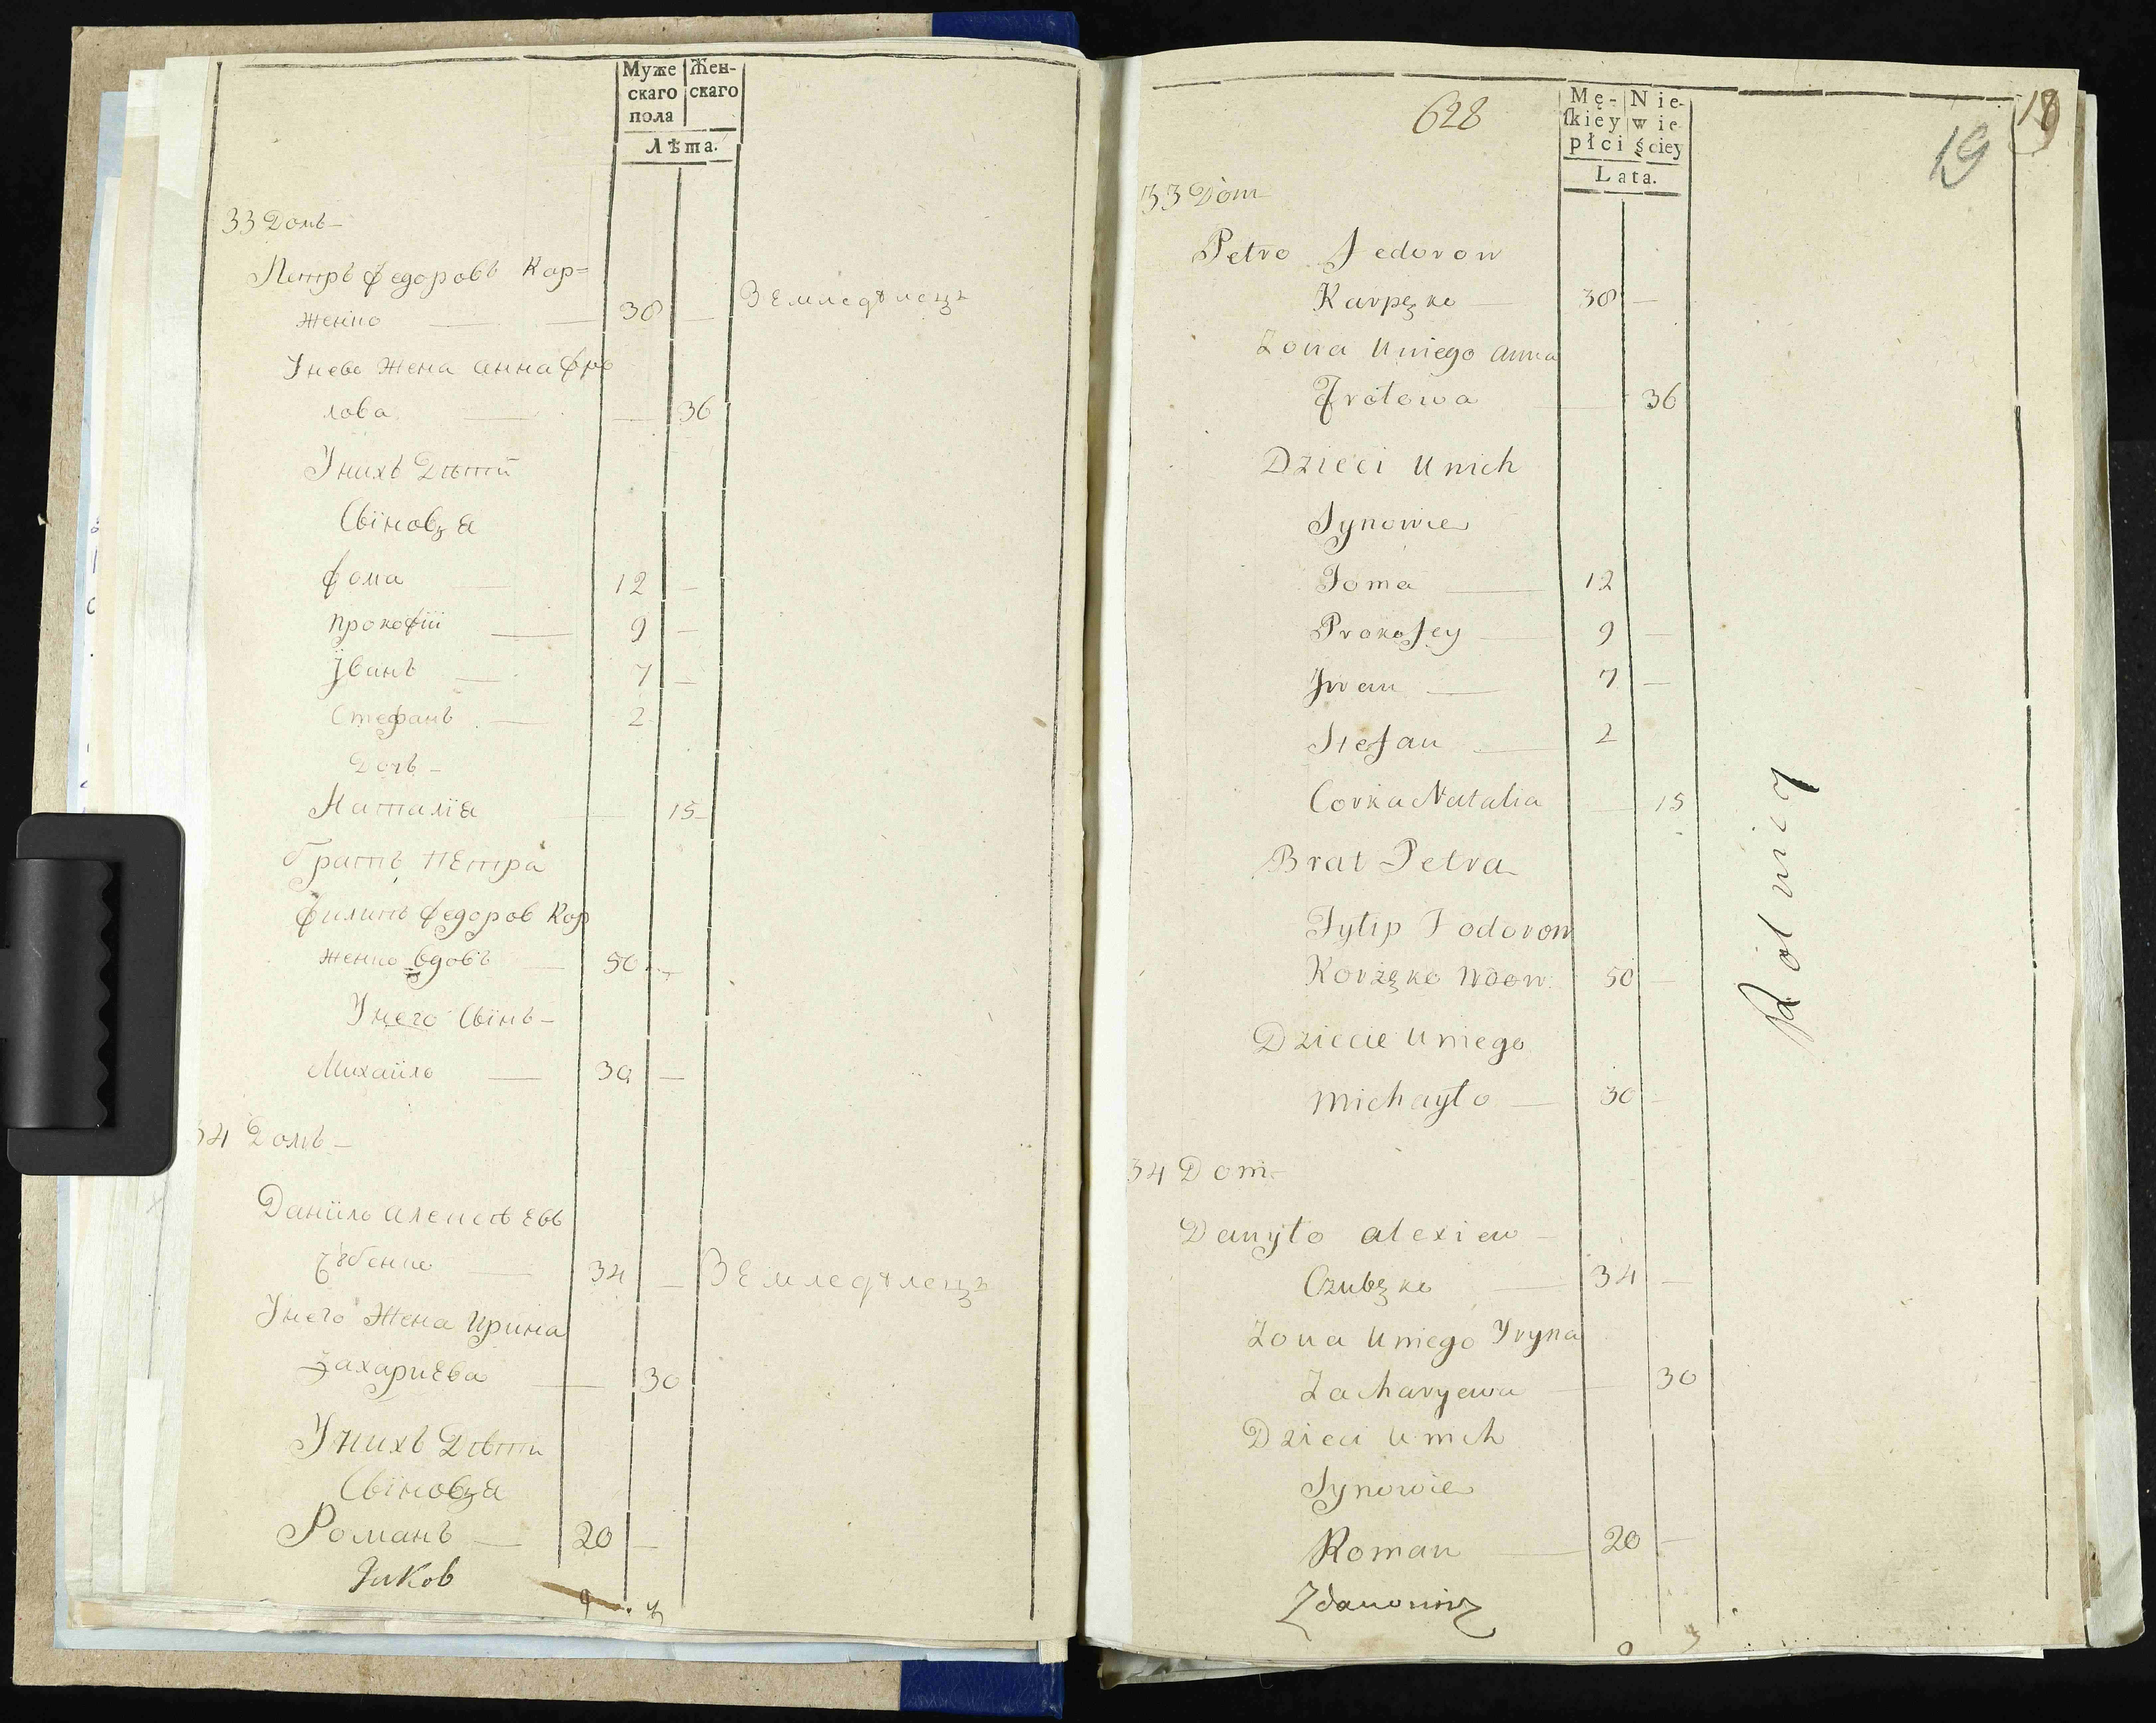 Муже Жен-
скаго скаго
пола
Лѣта.
33 Домъ —
Петръ федоровъ Кор=
женко — 38 — Земледѣлецъ
Унево Жена анна фро
лова — — 36
Унихъ Дѣтй
Свïновя
фома — 12 —
прокофïй — 9 —
Йванъ — 7 —
Стефанъ — 2
Дочъ —
Наталïя — 15
братъ Петра
филипъ федоров Кор
женко вдовъ — 50 —
Унего Свïнъ —
Михайло — 30 —
34 Домъ —
Данïило алексѣевъ
34 — Земледѣлецъ
Унего Жена ирина
Захариева — 30
Унихъ Дѣти
Свïновя
Романъ — 20 —
Яков
628
Mę- Nie-
ſkiey wie
płci ściey
Lata.
18
19
33 Dom
Petro Fedorow
Karpęko — 38 —
Zona Uniego Anna
Frołowa — 36
Dzieci Unich
Synowie
Foma — 12
Prokofey — 9 —
Jwan — 7 —
Stefan — 2
Corka Natalia — 15
Brat Petra
Fylip Fodorow
Korżęko Wdow. 50 —
Dziecie Uniego
Michayło — 30 —
Rolnicy
34 Dom —
Danyło alexiew —
Czubęko — 34 —
Zona Uniego Iryna
Zacharyewa — 30
Dzieci Unich
Synowie
Roman — 20 —
Zdanowicz